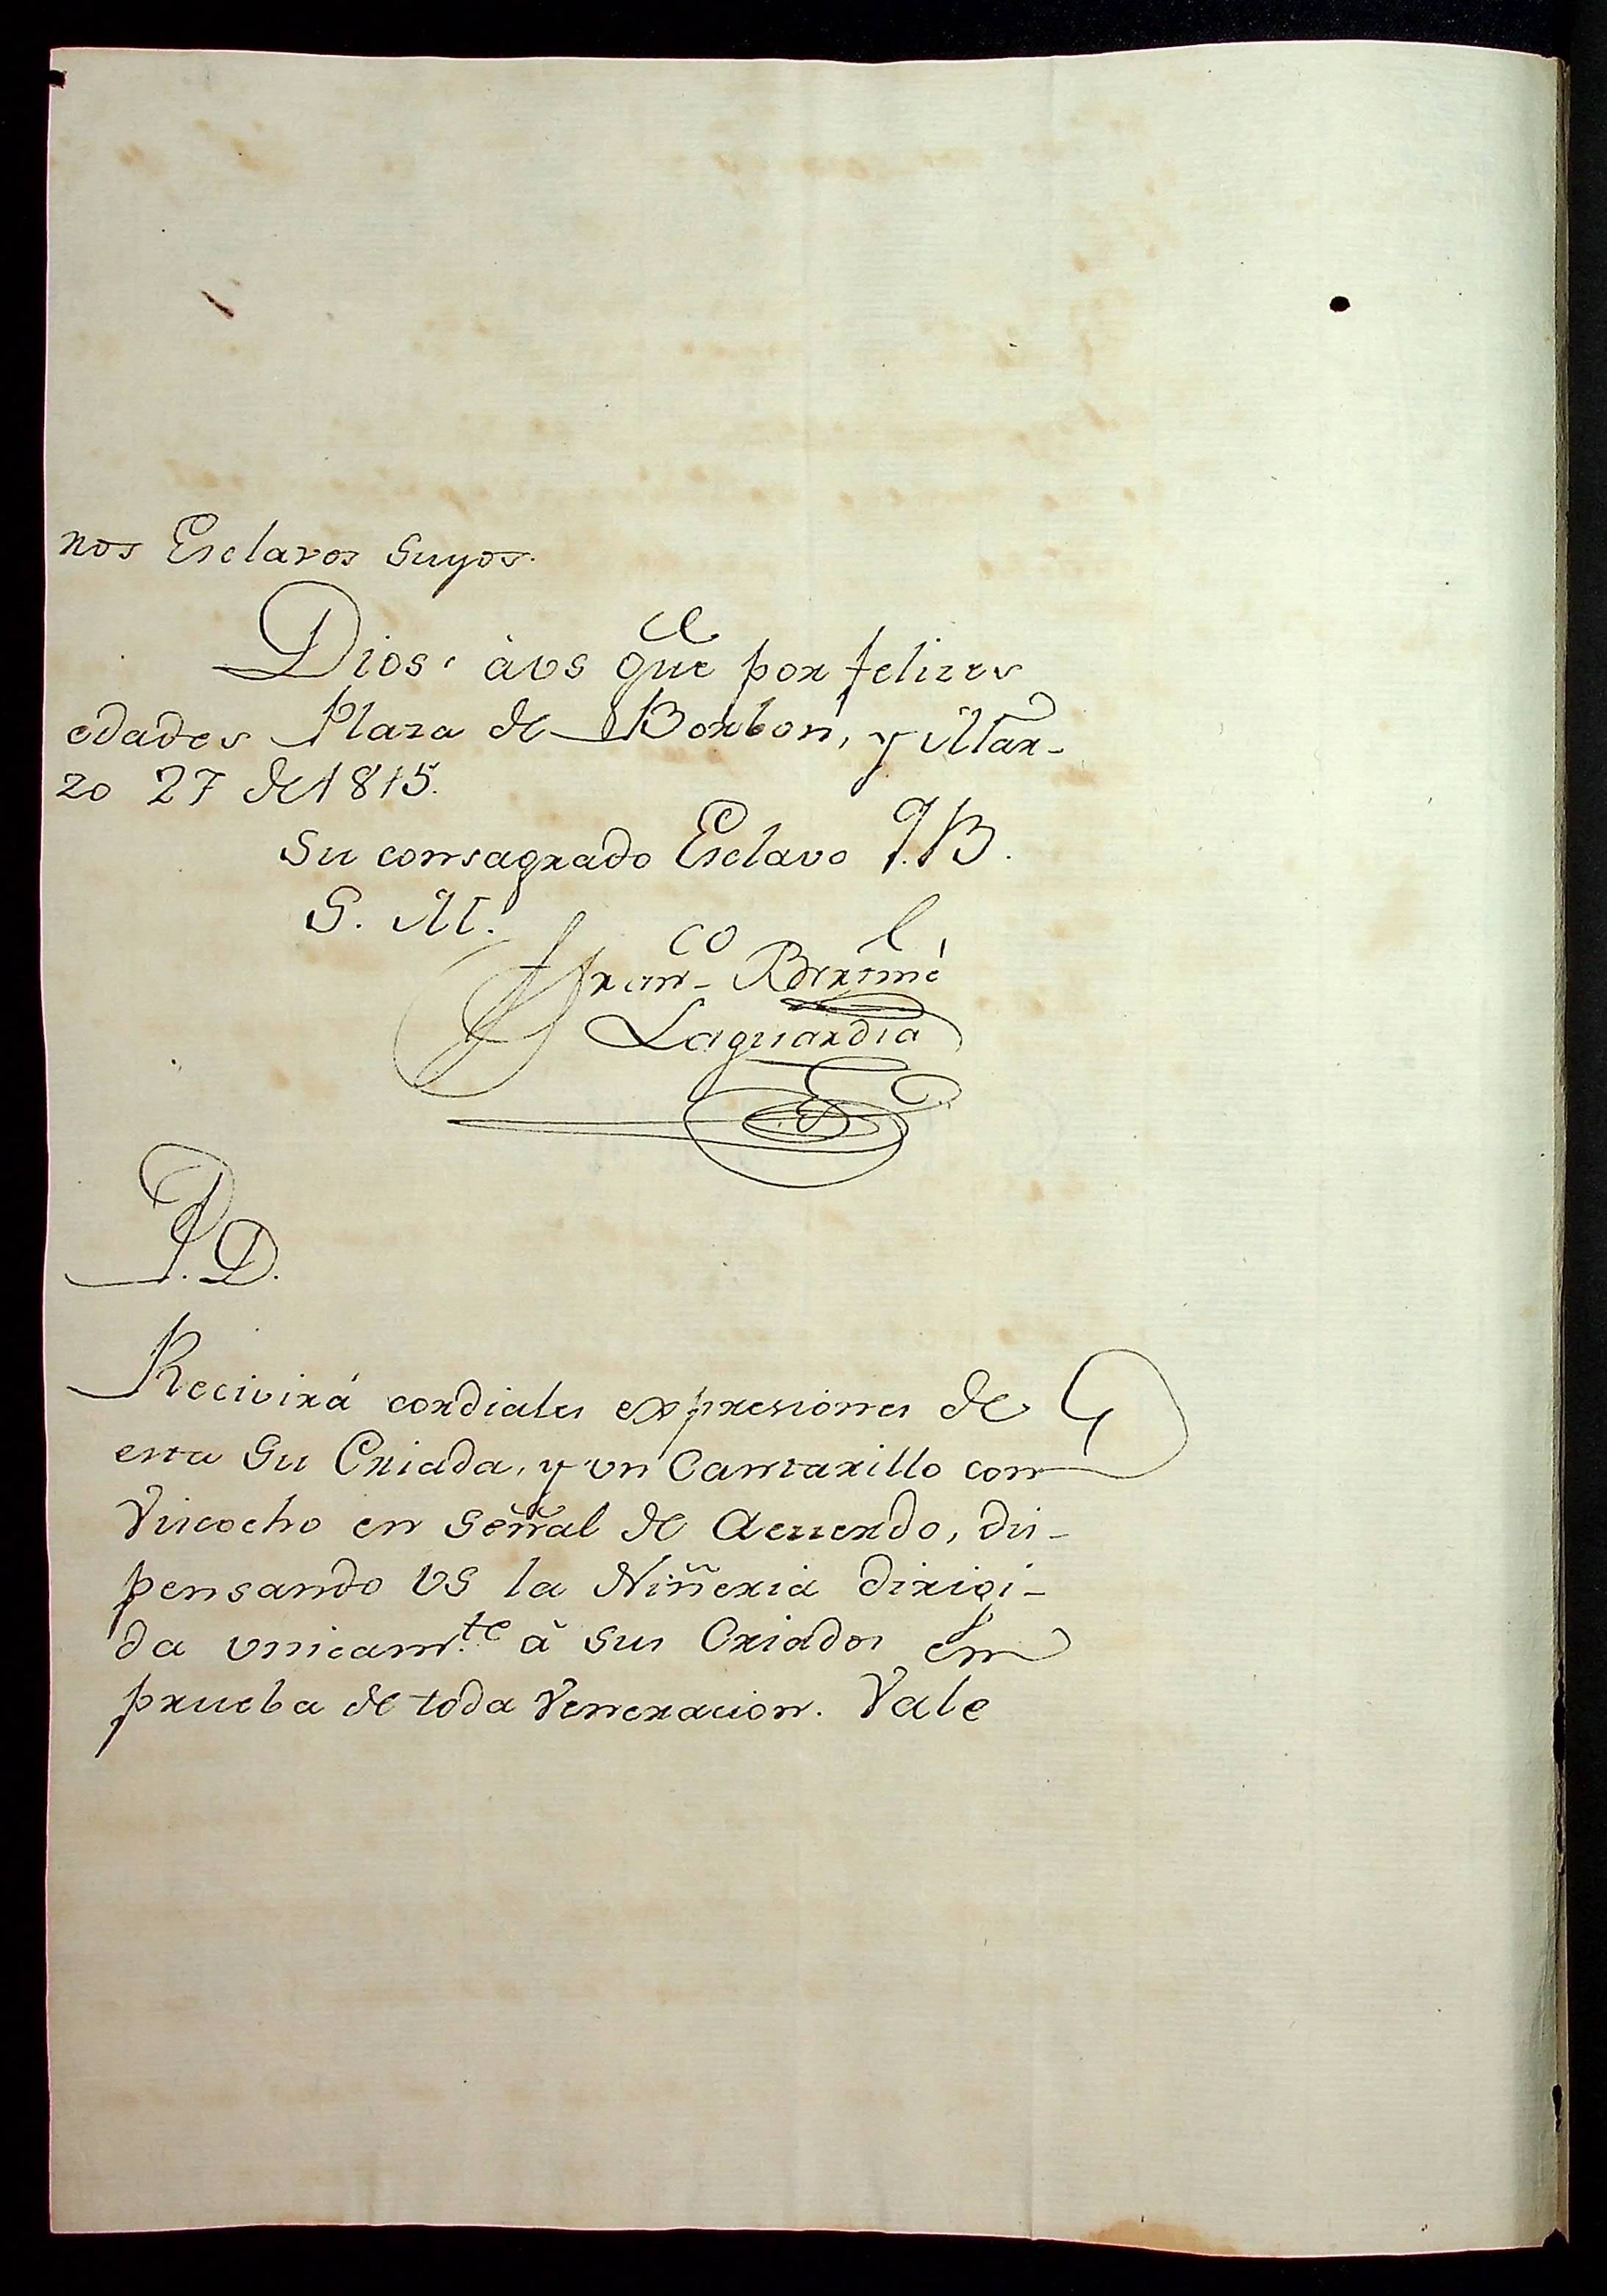 nos Esclavos Suyos.
Dios, à vs gũe por felizes
edades Plaza de Borbon, y Mar-
zo 27 de 1815.
Su consagrado Esclavo Q. B.
S. M.
Fran.co
Laguardia
P. D.
Recivirá cordiales expresiones de
esta Su Criada, y vn Cantarillo con
Viscocho en señal de Acuerdo, dis-
pensando VS la Niñeria dirigi-
da vnicam.te à sus Criados en
prueba de toda Veneracion. Vale